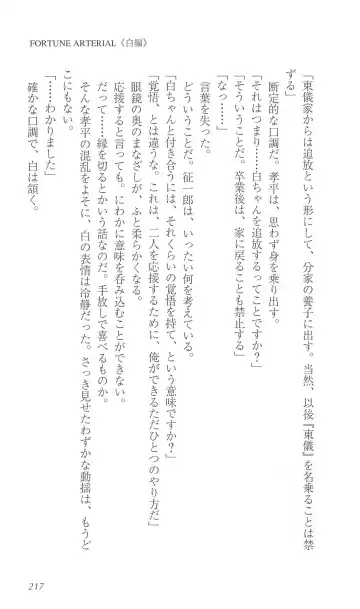 FORTUNE ARTERIAL《白編》
「東儀家からは追放という形にして、分家の養子に出す。当然、以後『東儀』を名乗ることは禁
ずる」
断定的な口調だ。孝平は、思わず身を乗り出す。
「それはつまり……白ちゃんを追放するってことですか？」
「そういうことだ。卒業後は、家に戻ることも禁止する」
「なっ……」
言葉を失った。
どういうことだ。征一郎は、いったい何を考えている。
「白ちゃんと付き合うには、それくらいの覚悟を持て、という意味ですか？」
「覚悟、とは違うな。これは、二人を応援するために、俺ができるただひとつのやり方だ」
眼鏡の奥のまなざしが、ふと柔らかくなる。
応援すると言っても。にわかに意味を呑み込むことができない。
だって……縁を切るとかいう話なのだ。手放しで喜べるものか。
そんな孝平の混乱をよそに、白の表情は冷静だった。さっき見せたわずかな動揺は、もうど
こにもない。
「……わかりました」
確かな口調で、白は頷く。
217